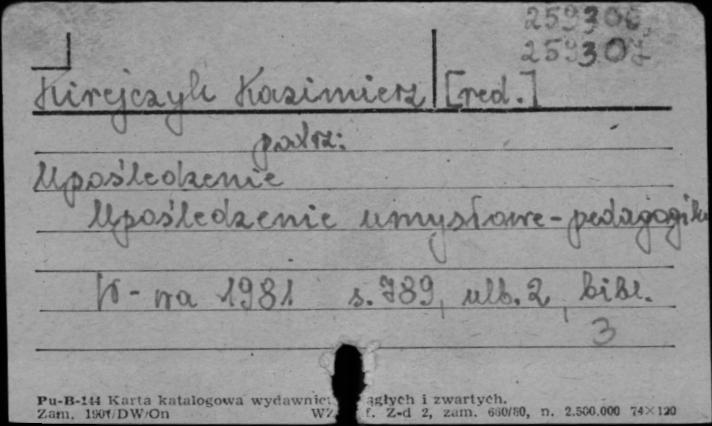 259306,
259307
Kirejczyk Kazimierz [red.]
patrz:
Upośledzenie
Upośledzenie umysłowe - pedagogika
W-wa 1981 s. 789, ulb. 2, bibl.
3
Pu-B-144 Karta katalogowa wydawnict ągłych i zwartych.
Zam. 1901/DW/On WZ f. Z-d 2, zam. 660/80, n. 2.500.000 74×120